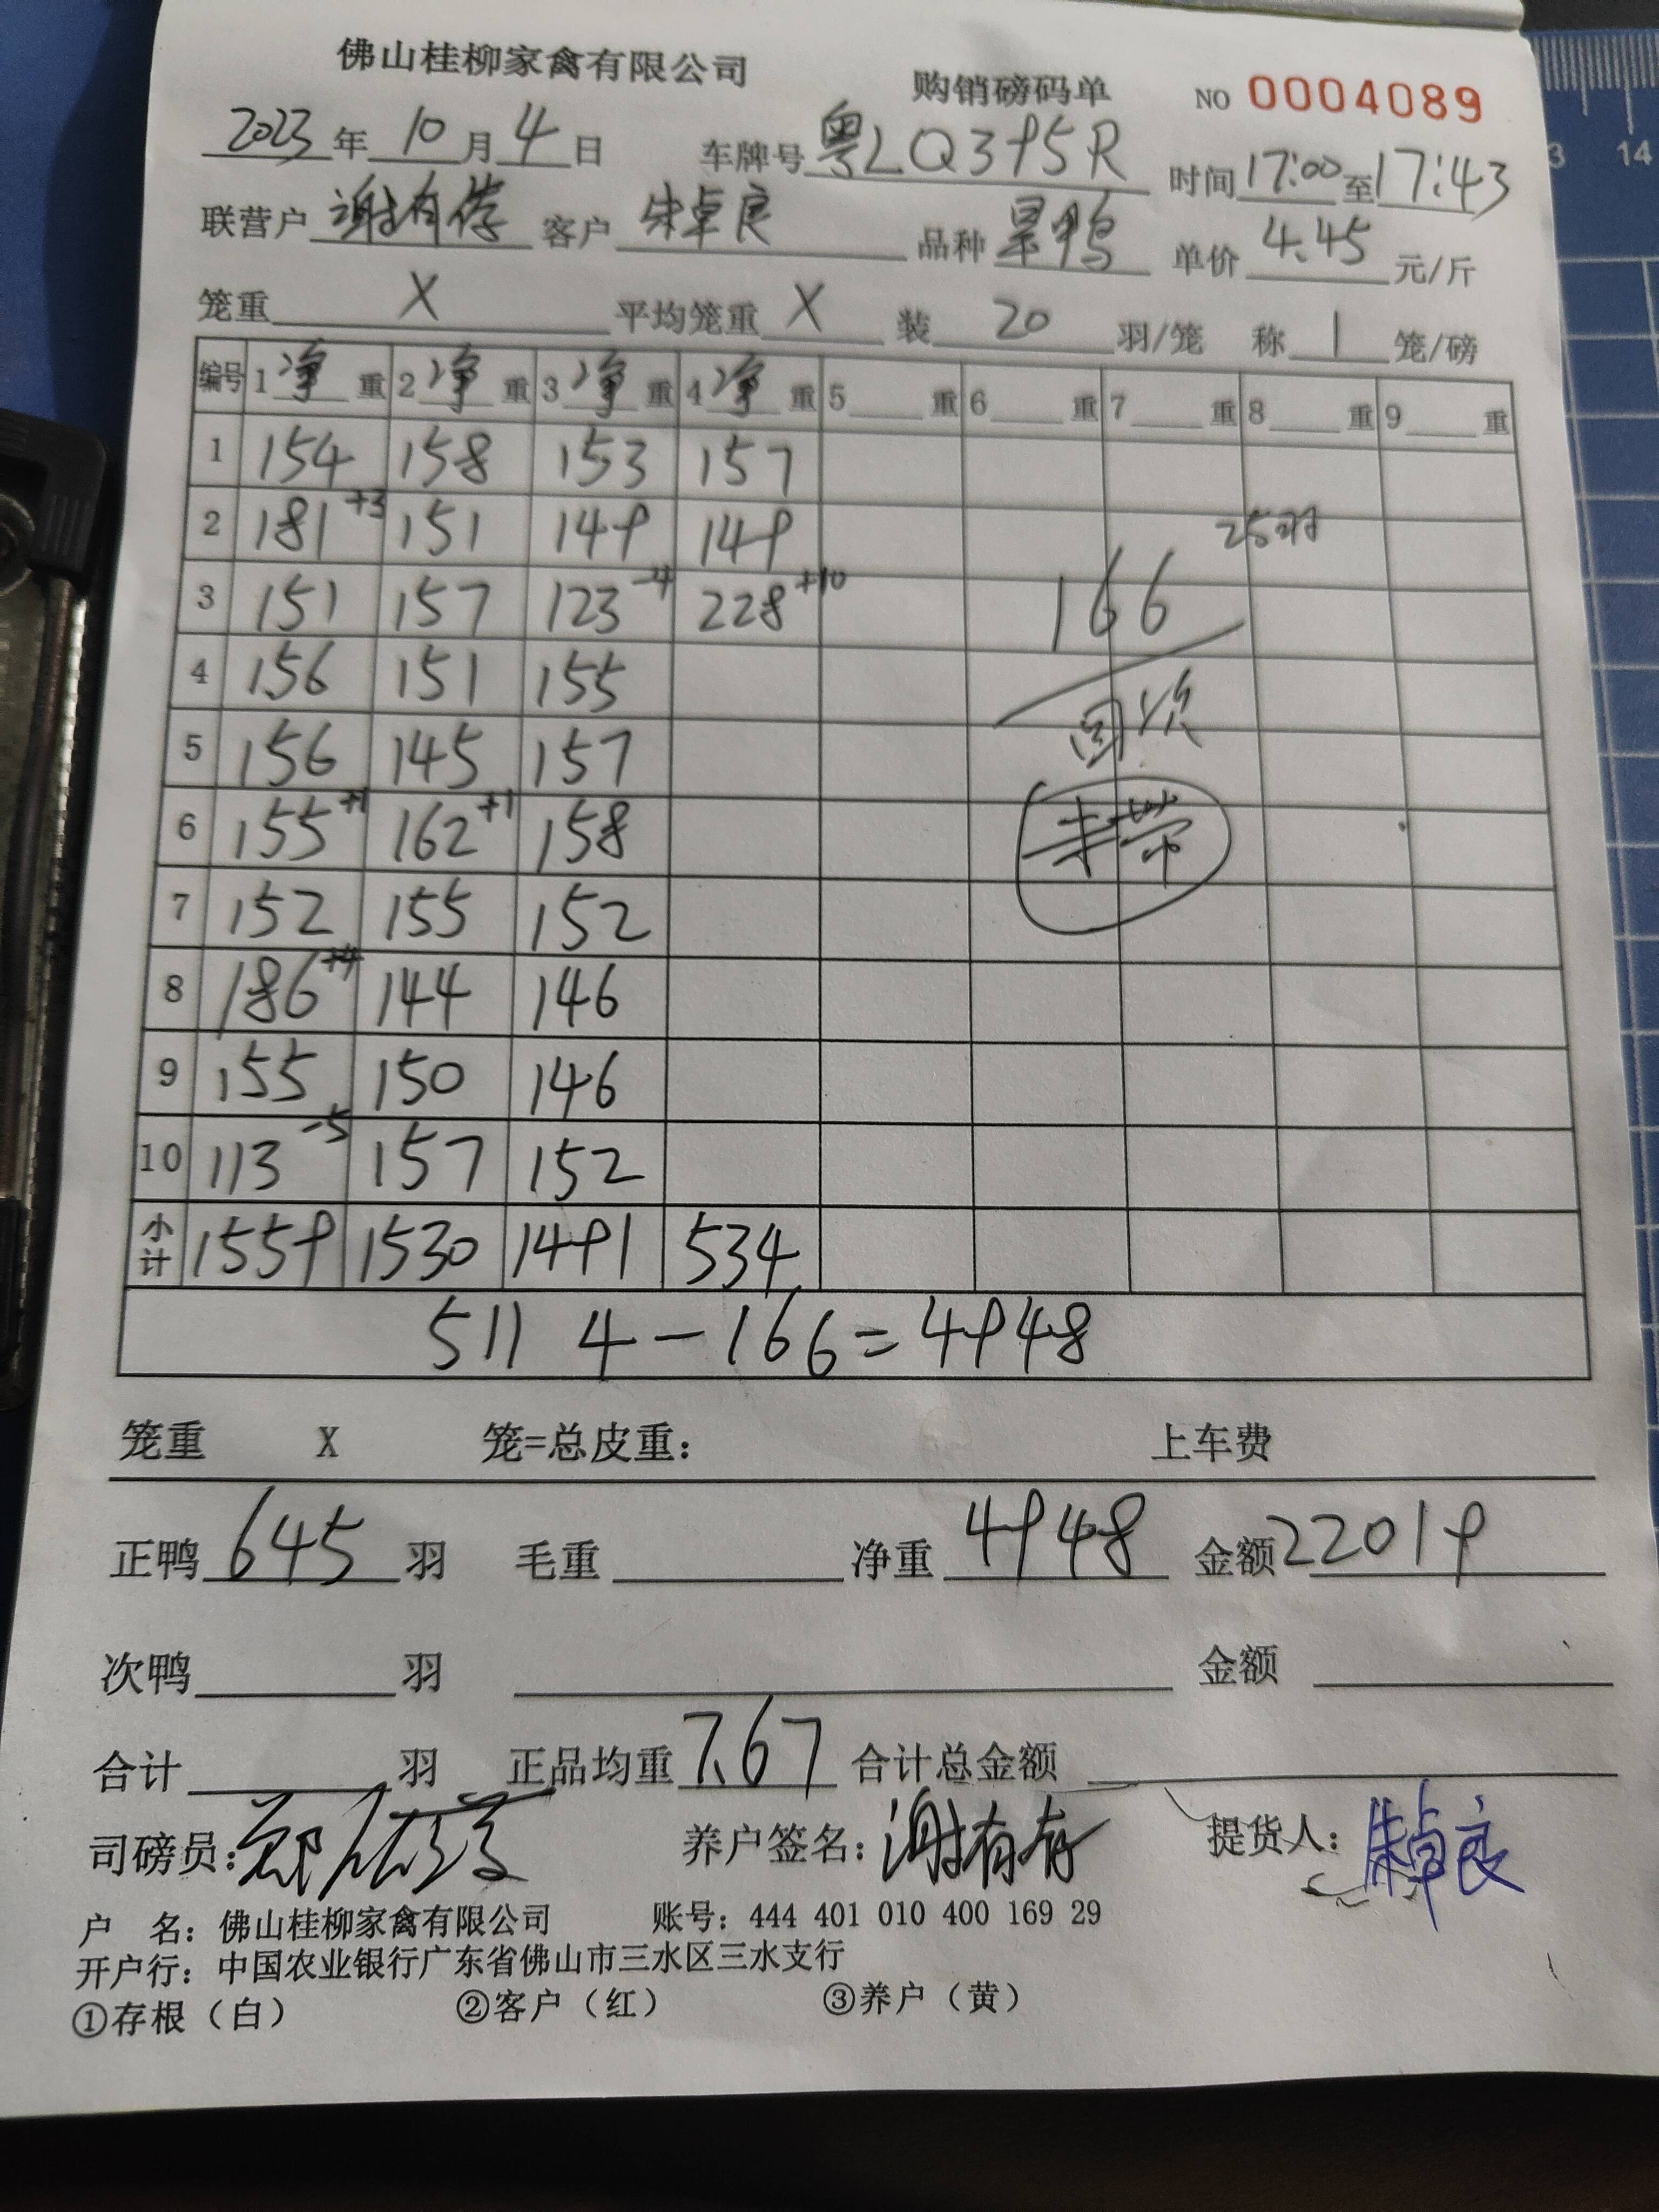 佛山桂柳家禽有限公司 购销磅码单 NO 0004089
2023年10月4日 车牌号 粤LQ395R 时间17:00至17:43
联营户 谢有存 客户 朱卓良 品种 旱鸭 单价 4.45 元/斤
笼重 X 平均笼重 X 装 20 羽/笼 称 1 笼/磅
编号 1净重 2净重 3净重 4净重 5 重 6 重 7 重 8 重 9 重
1 154 158 153 157
2 181+3 151 149 149 25羽
3 151 157 123-4 228+10 166
4 156 151 155 回次
5 156 145 157
6 155+1 162+1 158
7 152 155 152
8 186+4 144 146
9 155 150 146
10 113-5 157 152
小计 1559 1530 1491 534
5114-166=4948
笼重 X 笼=总皮重: 上车费
正鸭 645 羽 毛重 净重 4948 金额 22019
次鸭 羽 金额
合计 羽 正品均重 7.67 合计总金额
司磅员: 养户签名: 谢有存 提货人: 朱卓良
户 名: 佛山桂柳家禽有限公司 账号: 444 401 010 400 169 29
开户行: 中国农业银行广东省佛山市三水区三水支行
①存根（白） ②客户（红） ③养户（黄）
13 14